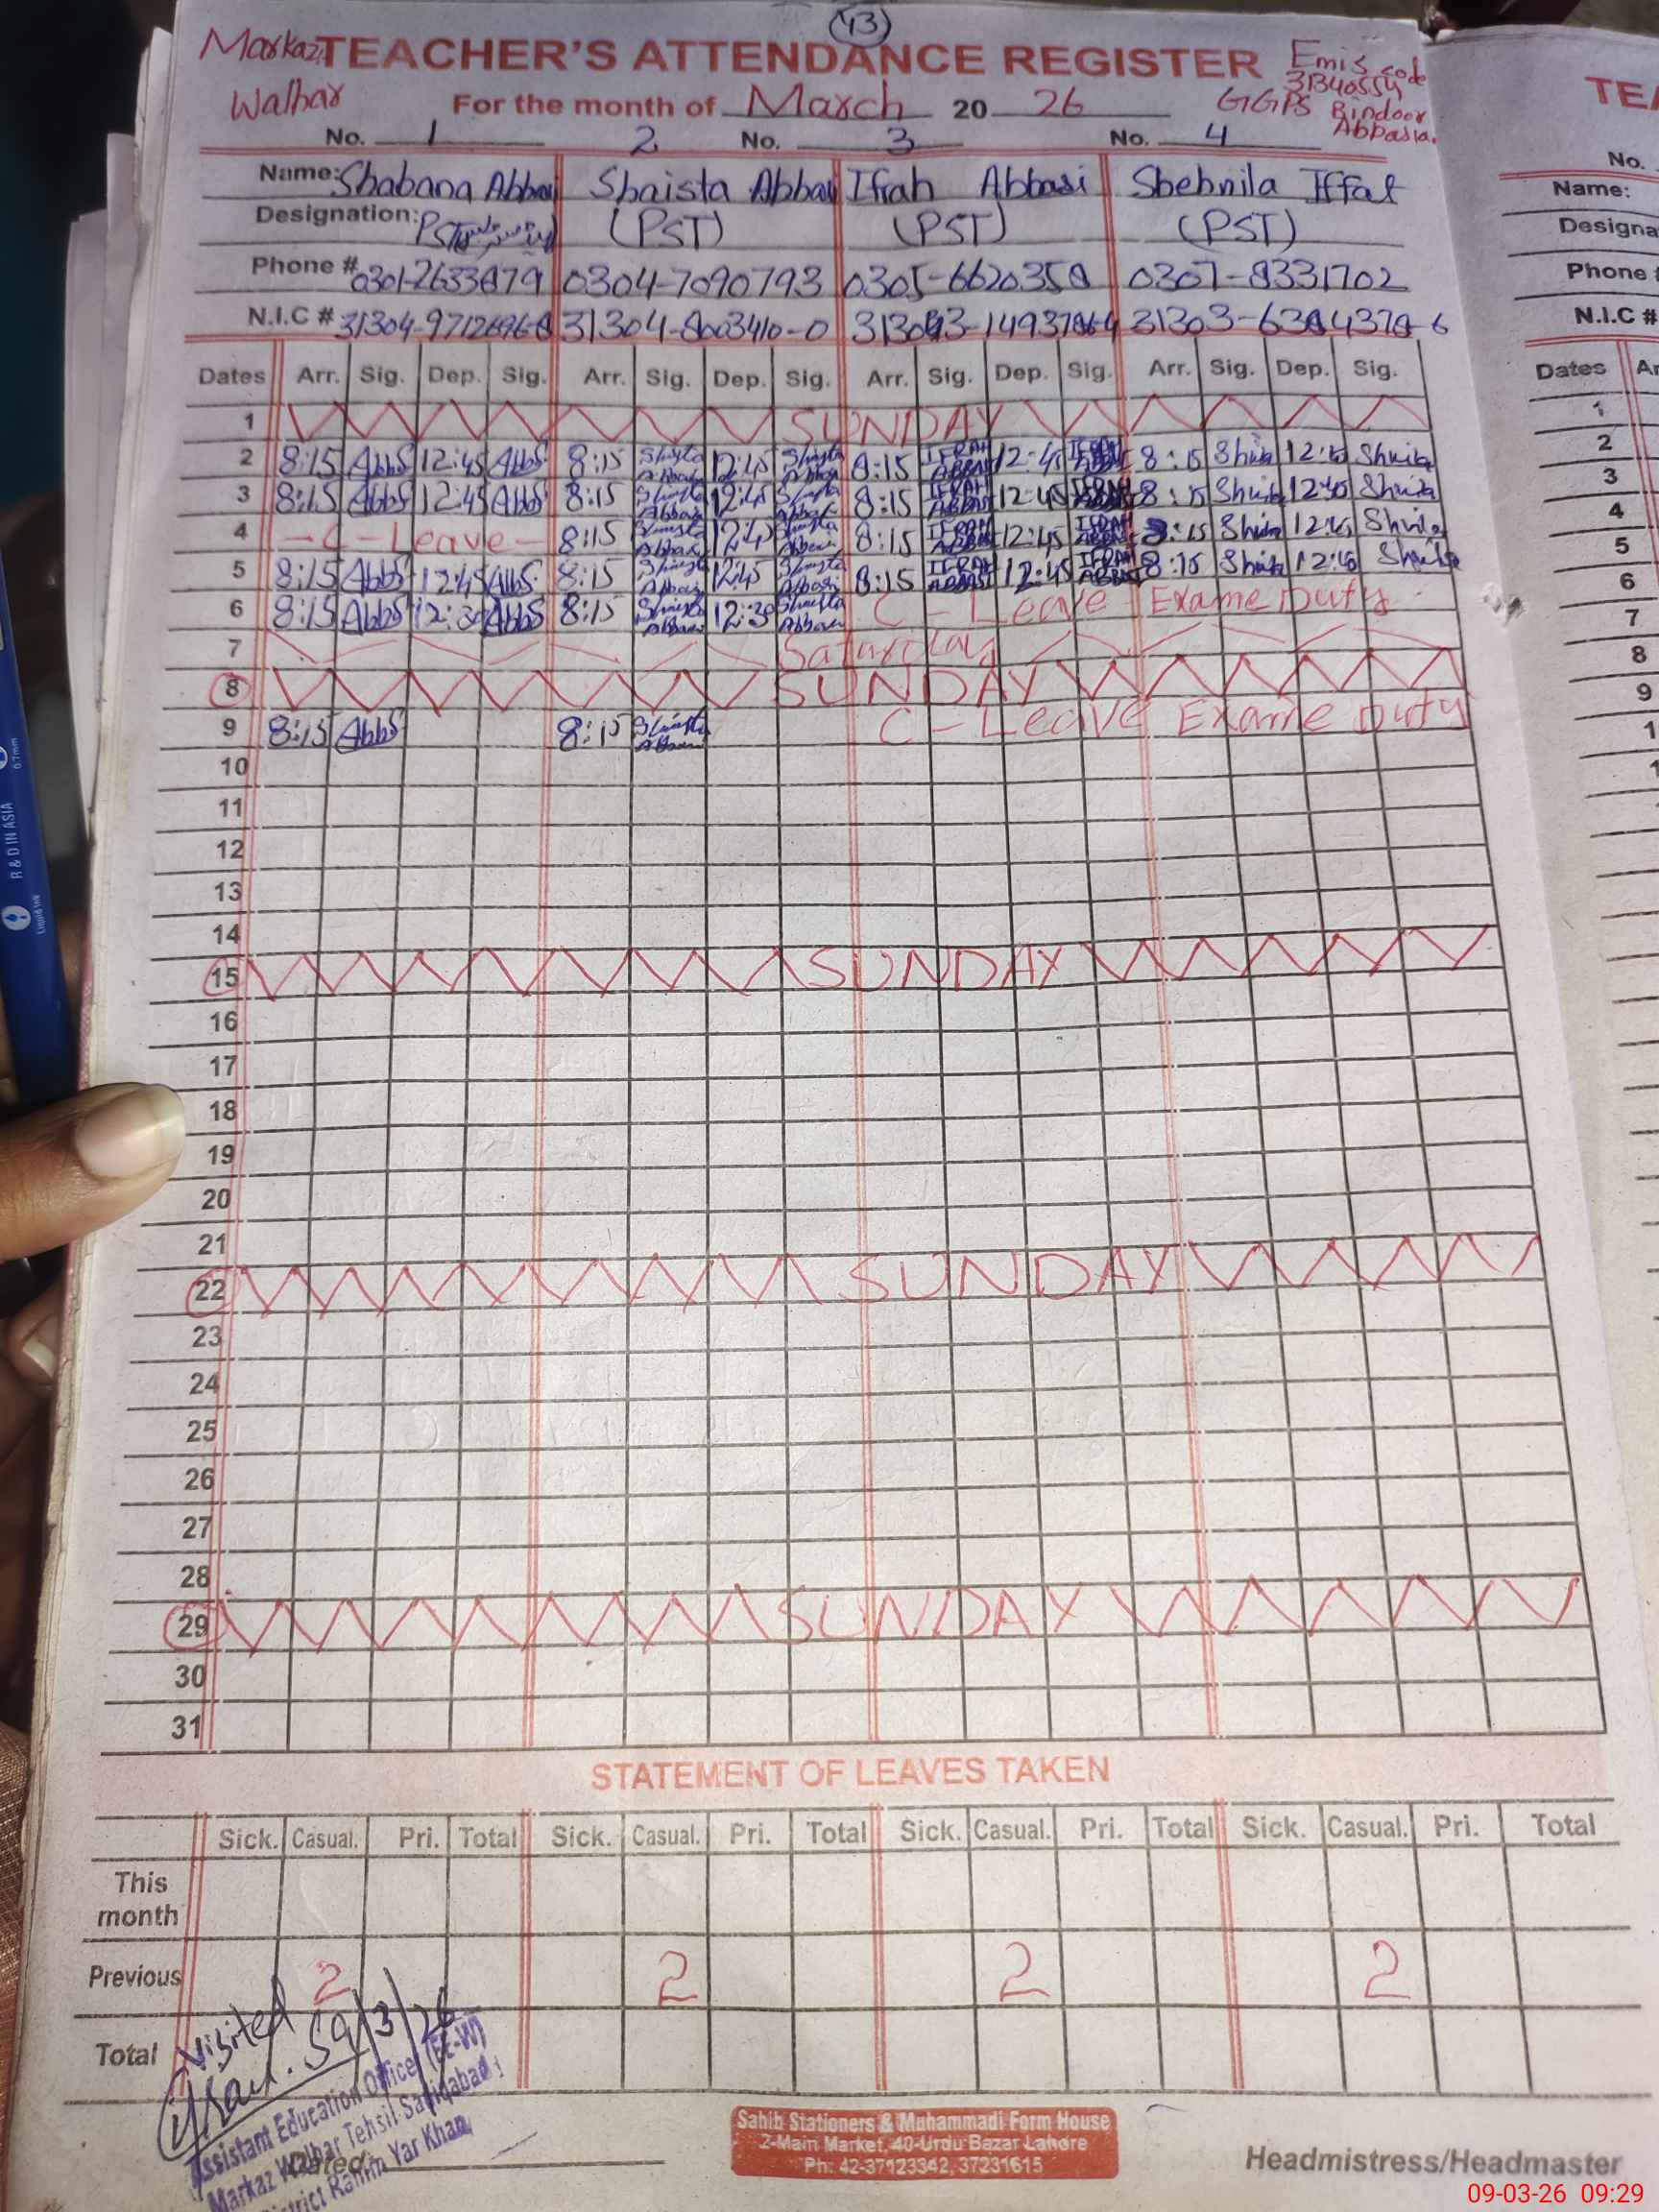 43
Markaz TEACHER'S ATTENDANCE REGISTER Emis code
31340554
Walhar For the month of March 20 26 GGPS Bindoor
Abbasia.
No. 1 2 No. 3 No. 4
Name: Shabana Abbasi Shaista Abbasi Ifrah Abbasi Shebnila Iffat
Designation: PST (PST) (PST) (PST)
Phone # 0301-2633879 0304-7090793 0305-6620358 0307-8331702
N.I.C # 31304-9712696-8 31304-8003410-0 31303-6384378-6
Dates Arr. Sig. Dep. Sig. Arr. Sig. Dep. Sig. Arr. Sig. Dep. Sig. Arr. Sig. Dep. Sig.
1 SUNDAY
2 8:15 Abbs 12:45 Abbs 8:15 Shaista Abbasi 12:45 Shaista Abbasi 8:15 IFRAH ABBASI 12:45 IFRAH 8:15 12:45
3 8:15 Abbs 12:45 Abbs 8:15 Shaista Abbasi 12:45 Shaista Abbasi 8:15 IFRAH ABBASI 12:45 IFRAH 8:15 12:45
4 - C - Leave - 8:15 Shaista Abbasi 12:45 Shaista Abbasi 8:15 IFRAH ABBASI 12:45 IFRAH 8:15 12:45
5 8:15 Abbs 12:45 Abbs 8:15 Shaista Abbasi 12:45 Shaista Abbasi 8:15 IFRAH ABBASI 12:45 IFRAH ABBASI 8:15 12:45
6 8:15 Abbs 12:30 Abbs 8:15 Shaista Abbasi 12:30 Shaista Abbasi C - Leave - Exame Duty
7 Saturday
8 SUNDAY
9 8:15 Abbs 8:15 Shaista Abbasi C - Leave Exame Duty
10
11
12
13
14
15 SUNDAY
16
17
18
19
20
21
22 SUNDAY
23
24
25
26
27
28
29 SUNDAY
30
31
STATEMENT OF LEAVES TAKEN
Sick. Casual. Pri. Total Sick. Casual. Pri. Total Sick. Casual. Pri. Total Sick. Casual. Pri. Total
This
month
Previous 2 2 2 2
Total
Visited
9/3/26
Assistant Education Officer (EE-W)
Markaz Walhar Tehsil Sadiqabad
District Rahim Yar Khan
Dated:
Sahib Stationers & Muhammadi Form House
2-Main Market, 40-Urdu Bazar Lahore
Ph: 42-37123342, 37231615
Headmistress/Headmaster
TEA
No.
Name:
Designa
Phone #
N.I.C #
Dates Ar
1
2
3
4
5
6
7
8
9
R & D IN ASIA
0.7mm
Liquid Ink
09-03-26 09:29